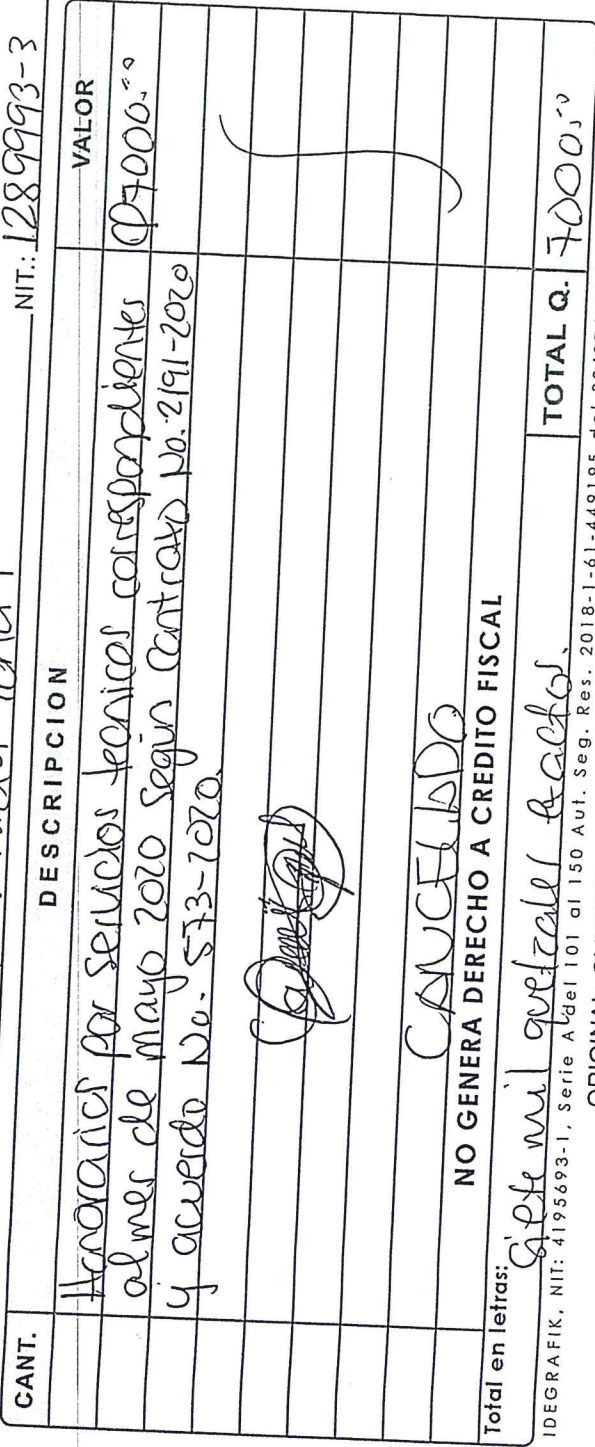 NIT.: 1289993-3
CANT. DESCRIPCION VALOR
Honorarios por servicios tecnicos correspondientes Q7000.00
al mes de Mayo 2020 según Contrato No. 2191-2020
y acuerdo No. 573-2020.
CANCELADO
NO GENERA DERECHO A CREDITO FISCAL
Total en letras: Siete mil quetzales exactos. TOTAL Q. 7000.00
IDEGRAFIK, NIT: 4195693-1, Serie A del 101 al 150 Aut. Seg. Res. 2018-1-61-449195 del
ORIGINAL